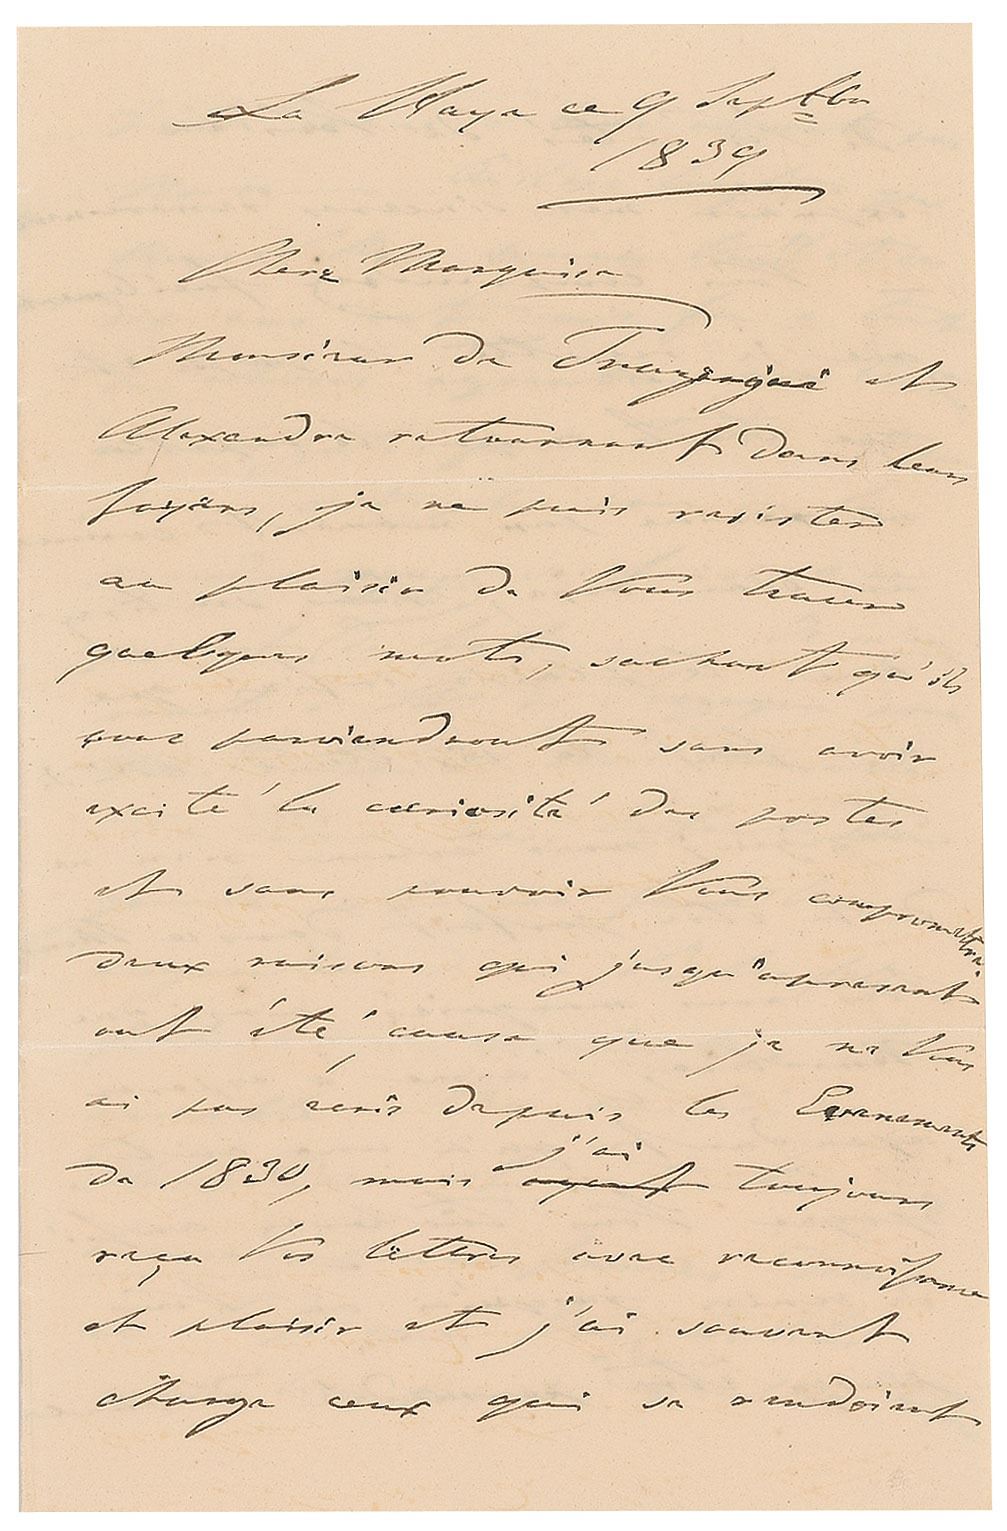 La Haye ce 9 Septbr
1839
Chere Marquise
Monsieur de et
Alexandre retournant dans leurs
foÿers, je ne puis resister
au plaisir de Vous tracer
quelques mots, sachant qu'ils
vous parviendront sans avoir
excité la curiosité des postes
et sans pouvoir Vous compromettre.
deux raisons qui jusqu'apresent
ont été cause que je ne Vous
ai pas écris depuis les Evenements
de 1830, mais j'ai toujours
reçu Vos lettres avec reconnoissance
et plaisir et j'ai souvent
charge ceux qui se rendoient